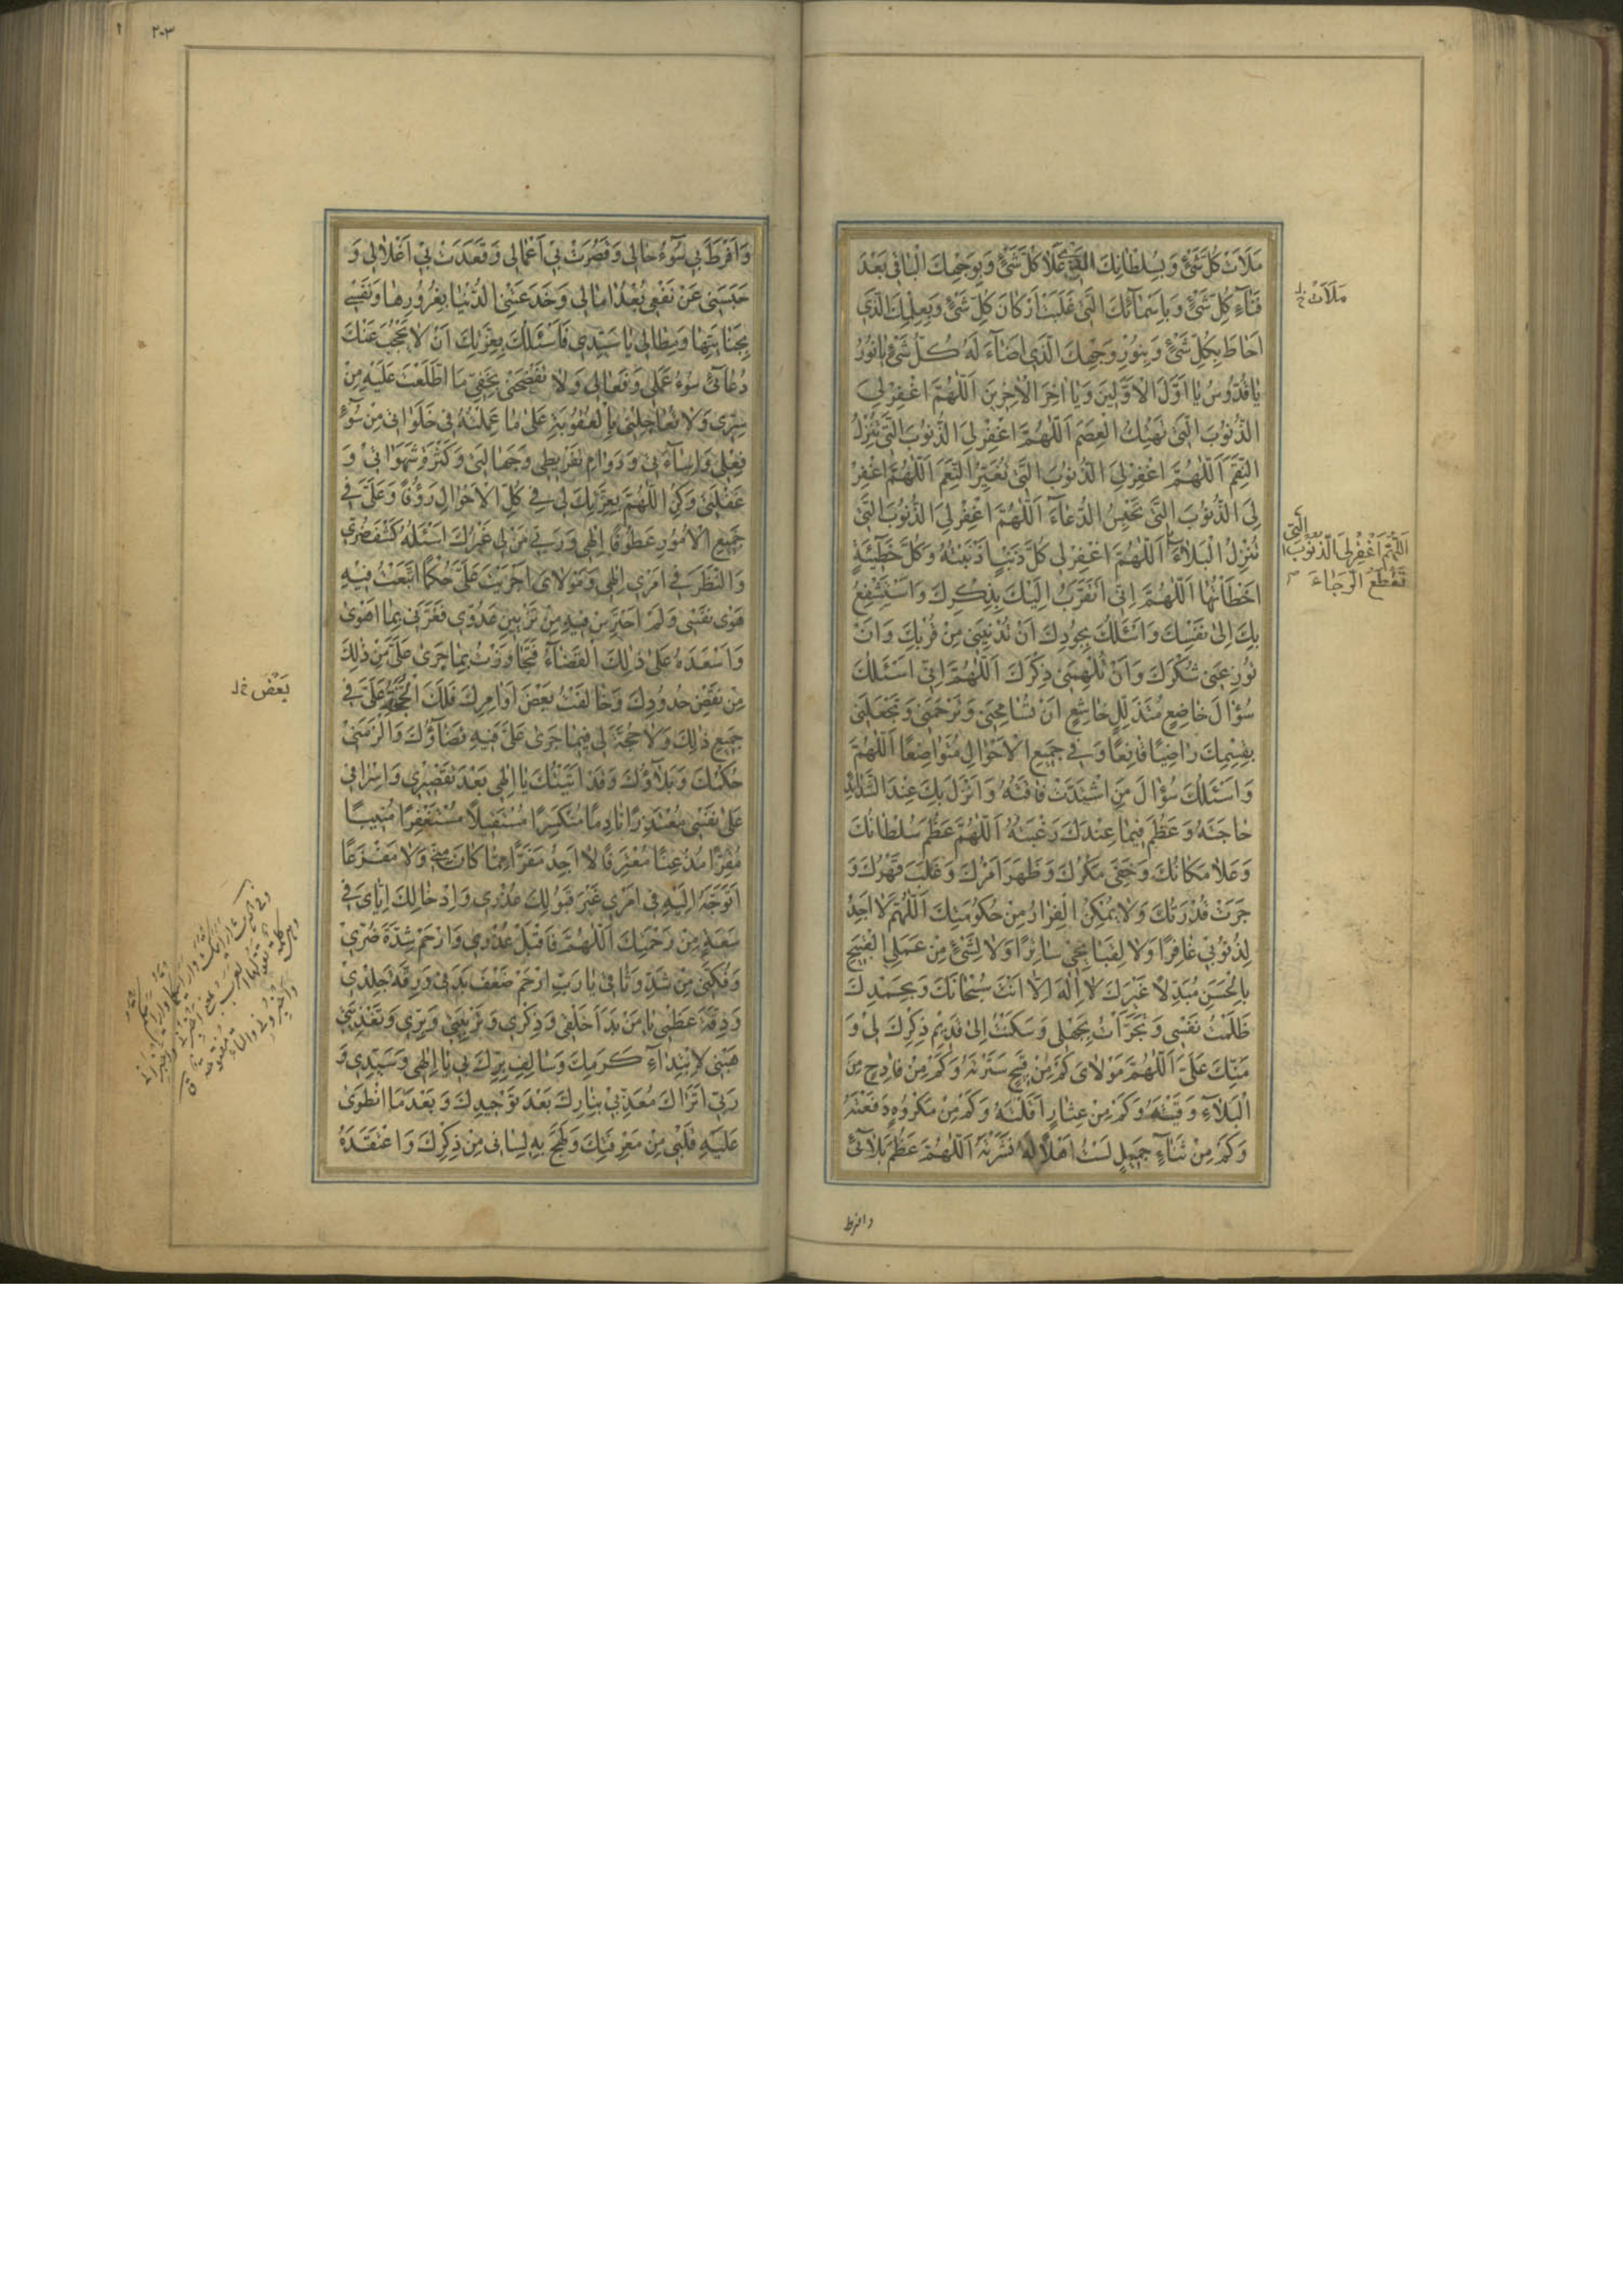 مَلَأَتْ كُلَّ شَيْءٍ وَبِسُلْطَانِكَ الَّذِي عَلَا كُلَّ شَيْءٍ وَبِوَجْهِكَ الْبَاقِي بَعْدَ
فَنَاءِ كُلِّ شَيْءٍ وَبِأَسْمَائِكَ الَّتِي غَلَبَتْ أَرْكَانَ كُلِّ شَيْءٍ وَبِعِلْمِكَ الَّذِي
أَحَاطَ بِكُلِّ شَيْءٍ وَبِنُورِ وَجْهِكَ الَّذِي أَضَاءَ لَهُ كُلُّ شَيْءٍ يَا نُورُ
يَا قُدُّوسُ يَا أَوَّلَ الْأَوَّلِينَ وَيَا آخِرَ الْآخِرِينَ اَللّٰهُمَّ اغْفِرْ لِيَ
الذُّنُوبَ الَّتِي تَهْتِكُ الْعِصَمَ اَللّٰهُمَّ اغْفِرْ لِيَ الذُّنُوبَ الَّتِي تُنْزِلُ
النِّقَمَ اَللّٰهُمَّ اغْفِرْ لِيَ الذُّنُوبَ الَّتِي تُغَيِّرُ النِّعَمَ اَللّٰهُمَّ اغْفِرْ
لِيَ الذُّنُوبَ الَّتِي تَحْبِسُ الدُّعَاءَ اَللّٰهُمَّ اغْفِرْ لِيَ الذُّنُوبَ الَّتِي
تُنْزِلُ الْبَلَاءَ اَللّٰهُمَّ اغْفِرْ لِي كُلَّ ذَنْبٍ أَذْنَبْتُهُ وَكُلَّ خَطِيئَةٍ
أَخْطَأْتُهَا اَللّٰهُمَّ إِنِّي أَتَقَرَّبُ إِلَيْكَ بِذِكْرِكَ وَأَسْتَشْفِعُ
بِكَ إِلَى نَفْسِكَ وَأَسْئَلُكَ بِجُودِكَ أَنْ تُدْنِيَنِي مِنْ قُرْبِكَ وَأَنْ
تُوزِعَنِي شُكْرَكَ وَأَنْ تُلْهِمَنِي ذِكْرَكَ اَللّٰهُمَّ إِنِّي أَسْئَلُكَ
سُؤَالَ خَاضِعٍ مُتَذَلِّلٍ خَاشِعٍ أَنْ تُسَامِحَنِي وَتَرْحَمَنِي وَتَجْعَلَنِي
بِقِسْمِكَ رَاضِيًا قَانِعًا وَفِي جَمِيعِ الْأَحْوَالِ مُتَوَاضِعًا اَللّٰهُمَّ
وَأَسْئَلُكَ سُؤَالَ مَنِ اشْتَدَّتْ فَاقَتُهُ وَأَنْزَلَ بِكَ عِنْدَ الشَّدَائِدِ
حَاجَتَهُ وَعَظُمَ فِيمَا عِنْدَكَ رَغْبَتُهُ اَللّٰهُمَّ عَظُمَ سُلْطَانُكَ
وَعَلَا مَكَانُكَ وَخَفِيَ مَكْرُكَ وَظَهَرَ أَمْرُكَ وَغَلَبَ قَهْرُكَ وَ
جَرَتْ قُدْرَتُكَ وَلَا يُمْكِنُ الْفِرَارُ مِنْ حُكُومَتِكَ اَللّٰهُمَّ لَا أَجِدُ
لِذُنُوبِي غَافِرًا وَلَا لِقَبَائِحِي سَاتِرًا وَلَا لِشَيْءٍ مِنْ عَمَلِيَ الْقَبِيحِ
بِالْحَسَنِ مُبَدِّلًا غَيْرَكَ لَا إِلٰهَ إِلَّا أَنْتَ سُبْحَانَكَ وَبِحَمْدِكَ
ظَلَمْتُ نَفْسِي وَتَجَرَّأْتُ بِجَهْلِي وَسَكَنْتُ إِلَى قَدِيمِ ذِكْرِكَ لِي وَ
مَنِّكَ عَلَيَّ اَللّٰهُمَّ مَوْلَايَ كَمْ مِنْ قَبِيحٍ سَتَرْتَهُ وَكَمْ مِنْ فَادِحٍ مِنَ
الْبَلَاءِ وَقَيْتَهُ وَكَمْ مِنْ عِثَارٍ أَقَلْتَهُ وَكَمْ مِنْ مَكْرُوهٍ دَفَعْتَهُ
وَكَمْ مِنْ ثَنَاءٍ جَمِيلٍ لَسْتُ أَهْلًا لَهُ نَشَرْتَهُ اَللّٰهُمَّ عَظُمَ بَلَائِي
وافرط
مَلَأَتْ خ ل
اَللّٰهُمَّ اغْفِرْ لِيَ الذُّنُوبَ الَّتِي
تَقْطَعُ الرَّجَاءَ
٢٠٣
وَأَفْرَطَ بِي سُوءُ حَالِي وَقَصُرَتْ بِي أَعْمَالِي وَقَعَدَتْ بِي أَغْلَالِي وَ
حَبَسَنِي عَنْ نَفْعِي بُعْدُ آمَالِي وَخَدَعَتْنِي الدُّنْيَا بِغُرُورِهَا وَنَفْسِي
بِجِنَايَتِهَا وَمِطَالِي يَا سَيِّدِي فَأَسْئَلُكَ بِعِزَّتِكَ أَنْ لَا يَحْجُبَ عَنْكَ
دُعَائِي سُوءُ عَمَلِي وَفِعَالِي وَلَا تَفْضَحَنِي بِخَفِيِّ مَا اطَّلَعْتَ عَلَيْهِ مِنْ
سِرِّي وَلَا تُعَاجِلْنِي بِالْعُقُوبَةِ عَلَى مَا عَمِلْتُهُ فِي خَلَوَاتِي مِنْ سُوءِ
فِعْلِي وَإِسَاءَتِي وَدَوَامِ تَفْرِيطِي وَجَهَالَتِي وَكَثْرَةِ شَهَوَاتِي وَ
غَفْلَتِي وَكُنِ اللّٰهُمَّ بِعِزَّتِكَ لِي فِي كُلِّ الْأَحْوَالِ رَؤُفًا وَعَلَيَّ فِي
جَمِيعِ الْأُمُورِ عَطُوفًا إِلٰهِي وَرَبِّي مَنْ لِي غَيْرُكَ أَسْئَلُهُ كَشْفَ ضُرِّي
وَالنَّظَرَ فِي أَمْرِي إِلٰهِي وَمَوْلَايَ أَجْرَيْتَ عَلَيَّ حُكْمًا اتَّبَعْتُ فِيهِ
هَوَى نَفْسِي وَلَمْ أَحْتَرِسْ فِيهِ مِنْ تَزْيِينِ عَدُوِّي فَغَرَّنِي بِمَا أَهْوَى
وَأَسْعَدَهُ عَلَى ذٰلِكَ الْقَضَاءُ فَتَجَاوَزْتُ بِمَا جَرَى عَلَيَّ مِنْ ذٰلِكَ
مِنْ نَقْضِ حُدُودِكَ وَخَالَفْتُ بَعْضَ أَوَامِرِكَ فَلَكَ الْحُجَّةُ عَلَيَّ فِي
جَمِيعِ ذٰلِكَ وَلَا حُجَّةَ لِي فِيمَا جَرَى عَلَيَّ فِيهِ قَضَاؤُكَ وَأَلْزَمَنِي
حُكْمُكَ وَبَلَاؤُكَ وَقَدْ أَتَيْتُكَ يَا إِلٰهِي بَعْدَ تَقْصِيرِي وَإِسْرَافِي
عَلَى نَفْسِي مُعْتَذِرًا نَادِمًا مُنْكَسِرًا مُسْتَقِيلًا مُسْتَغْفِرًا مُنِيبًا
مُقِرًّا مُذْعِنًا مُعْتَرِفًا لَا أَجِدُ مَفَرًّا مِمَّا كَانَ مِنِّي وَلَا مَفْزَعًا
أَتَوَجَّهُ إِلَيْهِ فِي أَمْرِي غَيْرَ قَبُولِكَ عُذْرِي وَإِدْخَالِكَ إِيَّايَ فِي
سَعَةٍ مِنْ رَحْمَتِكَ اَللّٰهُمَّ فَاقْبَلْ عُذْرِي وَارْحَمْ شِدَّةَ ضُرِّي
وَفُكَّنِي مِنْ شَدِّ وَثَاقِي يَا رَبِّ ارْحَمْ ضَعْفَ بَدَنِي وَرِقَّةَ جِلْدِي
وَدِقَّةَ عَظْمِي يَا مَنْ بَدَأَ خَلْقِي وَذِكْرِي وَتَرْبِيَتِي وَبِرِّي وَتَغْذِيَتِي
هَبْنِي لِابْتِدَاءِ كَرَمِكَ وَسَالِفِ بِرِّكَ بِي يَا إِلٰهِي وَسَيِّدِي وَ
رَبِّي أَتُرَاكَ مُعَذِّبِي بِنَارِكَ بَعْدَ تَوْحِيدِكَ وَبَعْدَ مَا انْطَوَى
عَلَيْهِ قَلْبِي مِنْ مَعْرِفَتِكَ وَلَهِجَ بِهِ لِسَانِي مِنْ ذِكْرِكَ وَاعْتَقَدَهُ
بَعْضَ خ ل